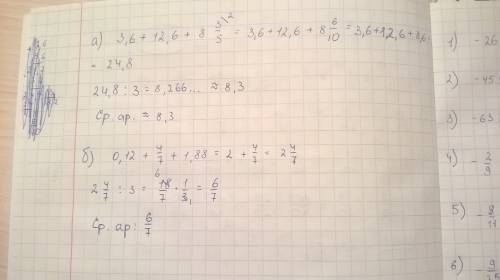 а) 3,6 + 12,6 + 8 3/5 \2 = 3,6 + 12,6 + 8 6/10 = 3,6+12,6+8,6=
= 24,8
24,8 : 3 = 8,266... ≈ 8,3
Ср. ар. ≈ 8,3
б) 0,12 + 4/7 + 1,88 = 2 + 4/7 = 2 4/7
2 4/7 : 3 = 6 18/7 · 1/3 1 = 6/7
Ср. ар: 6/7
1) - 26
2) - 45
3) - 63
4) - 2/9
5)
6)